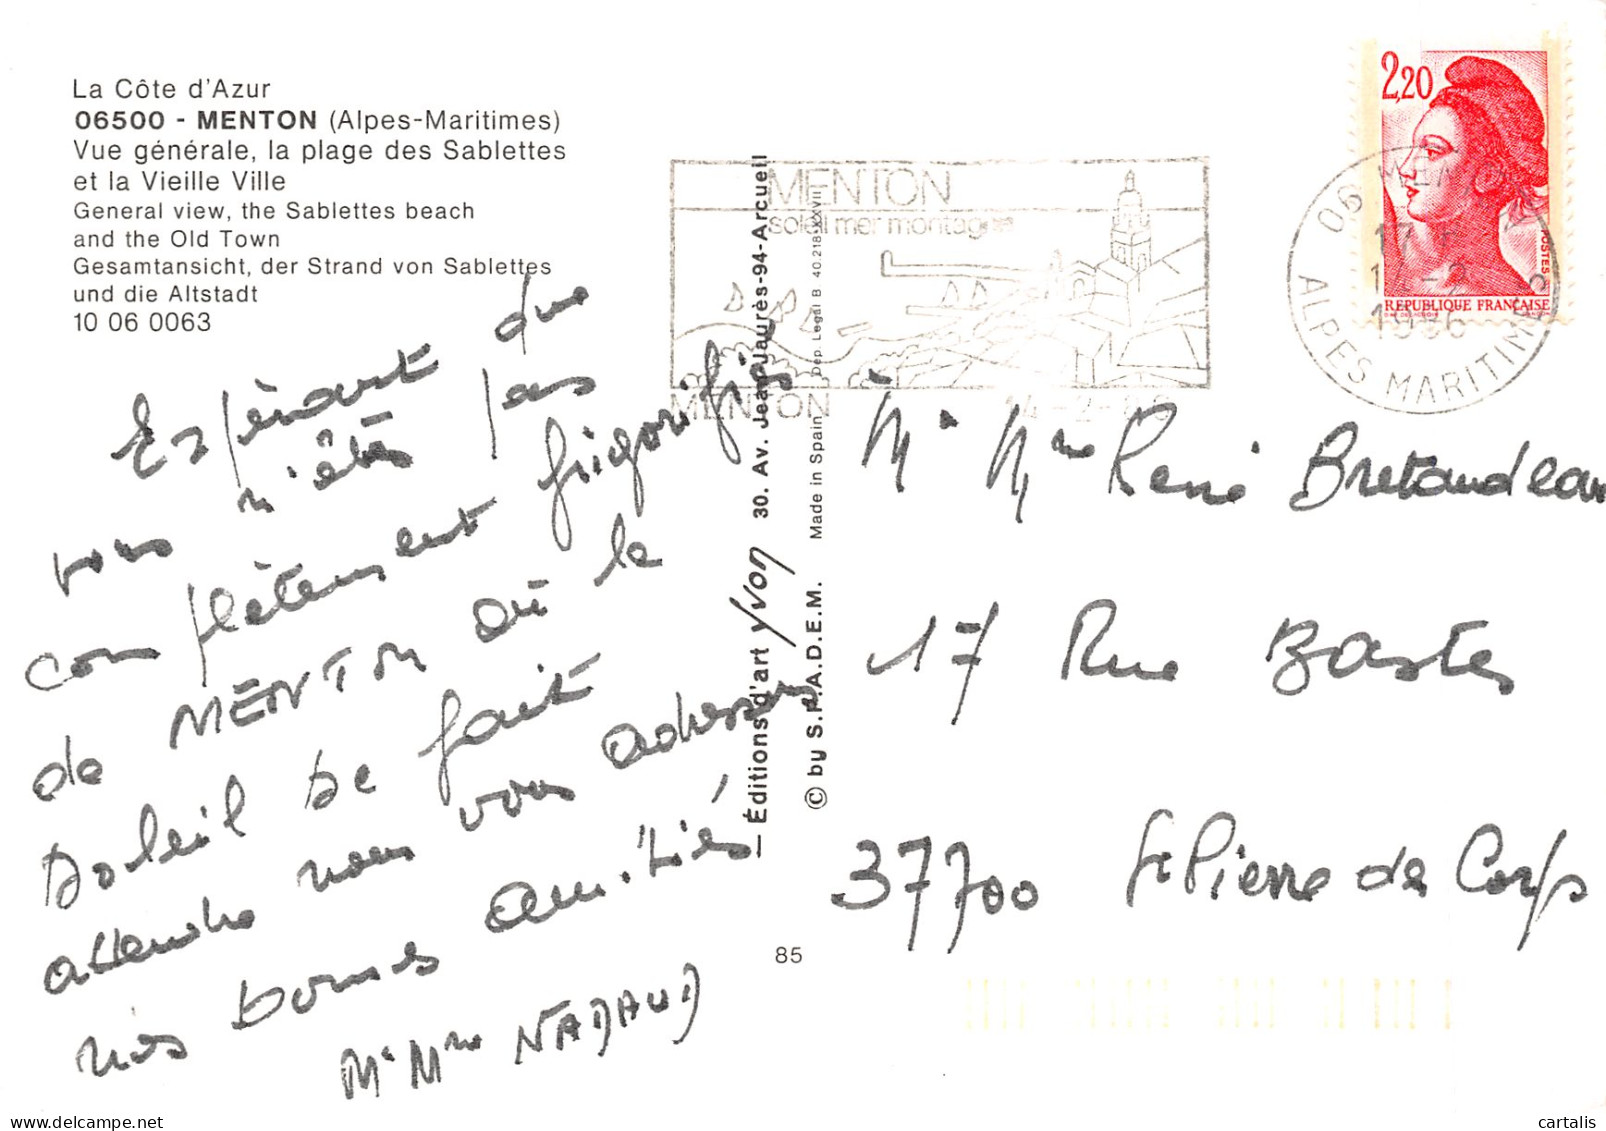 La Côte d'Azur
06500 - MENTON (Alpes-Maritimes)
Vue générale, la plage des Sablettes
et la Vieille Ville
General view, the Sablettes beach
and the Old Town
Gesamtansicht, der Strand von Sablettes
und die Altstadt
10 06 0063
Espérant que
vous n'êtes pas
complètement frigorifiés
de MENTON où le
soleil se fait
attendre nous vous adressons
nos bonnes amitiés
Mr Mme NADAUD
Éditions d'art yvon 30. Av. Jean-Jaurès-94-Arcueil
© by S.P.A.D.E.M. Made in Spain Dep. Legal B. 40.218-XXVII
85
MENTON
soleil mer montagne
MENTON
2,20
POSTES
RÉPUBLIQUE FRANÇAISE
06 MENTON
1986
ALPES MARITIMES
Mr Mme René Bretaudeau
17 Rue Bastes
37700 St Pierre des Corps
cartalis
delcampe.net